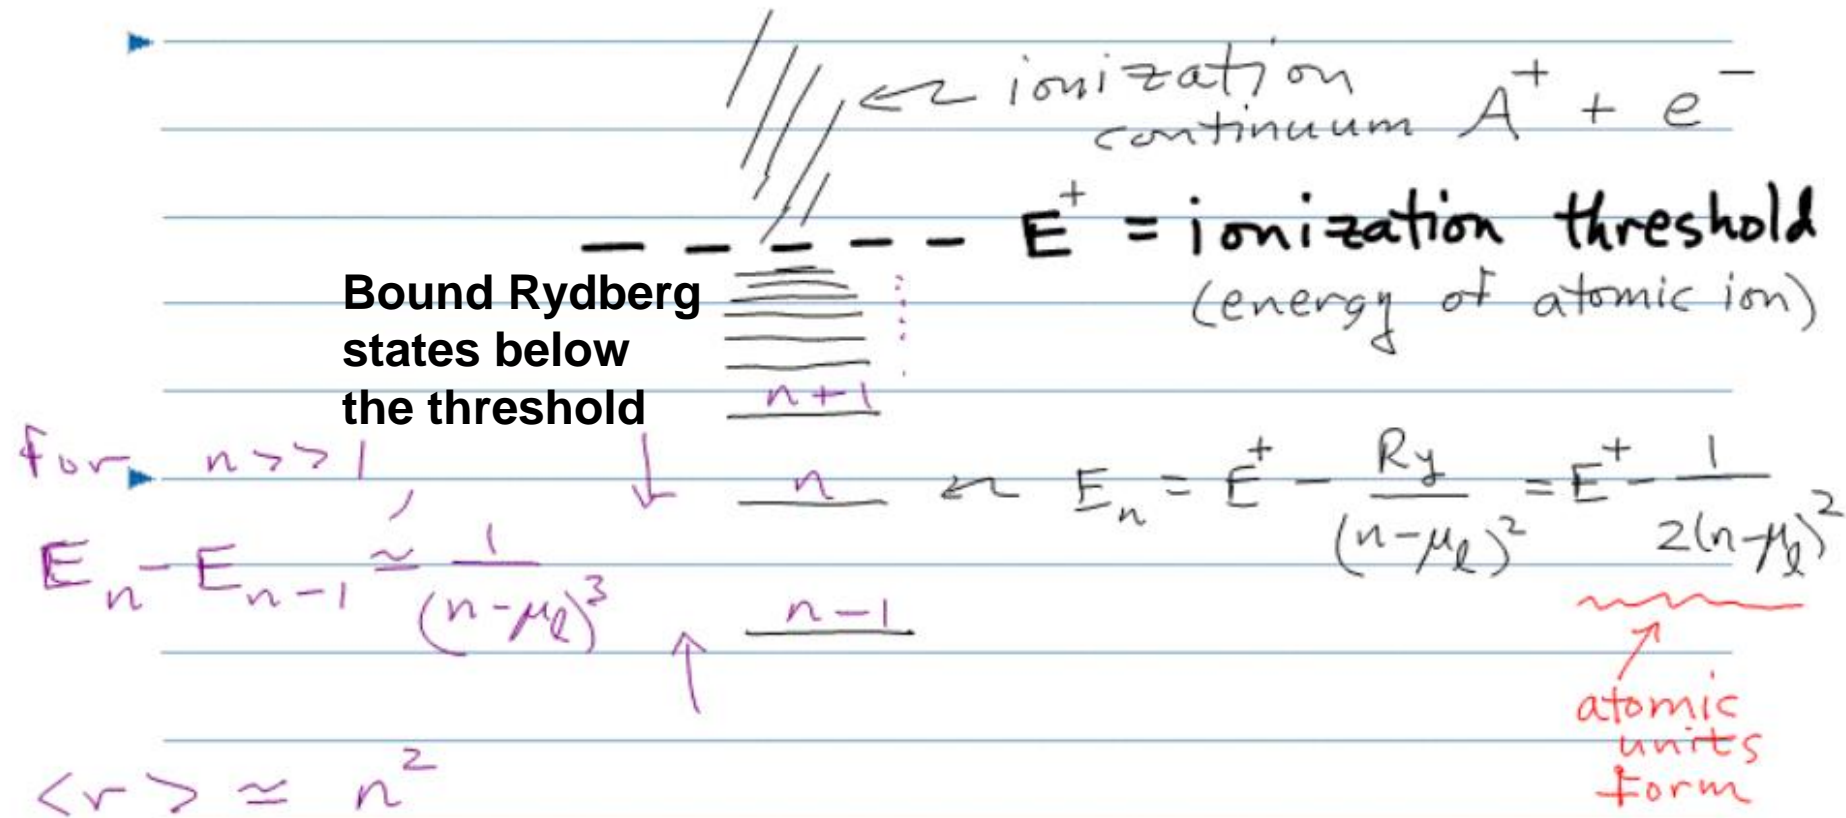 ionization
continuum A⁺ + e⁻
E⁺ = ionization threshold
(energy of atomic ion)
Bound Rydberg
states below
the threshold
n+1
for n>>1,
n
Eₙ = E⁺ - Ry/(n-μₗ)² = E⁺ - 1/2(n-μₗ)²
Eₙ - Eₙ₋₁ ≃ 1/(n-μₗ)³
n-1
atomic
units
form
<r> ≃ n²